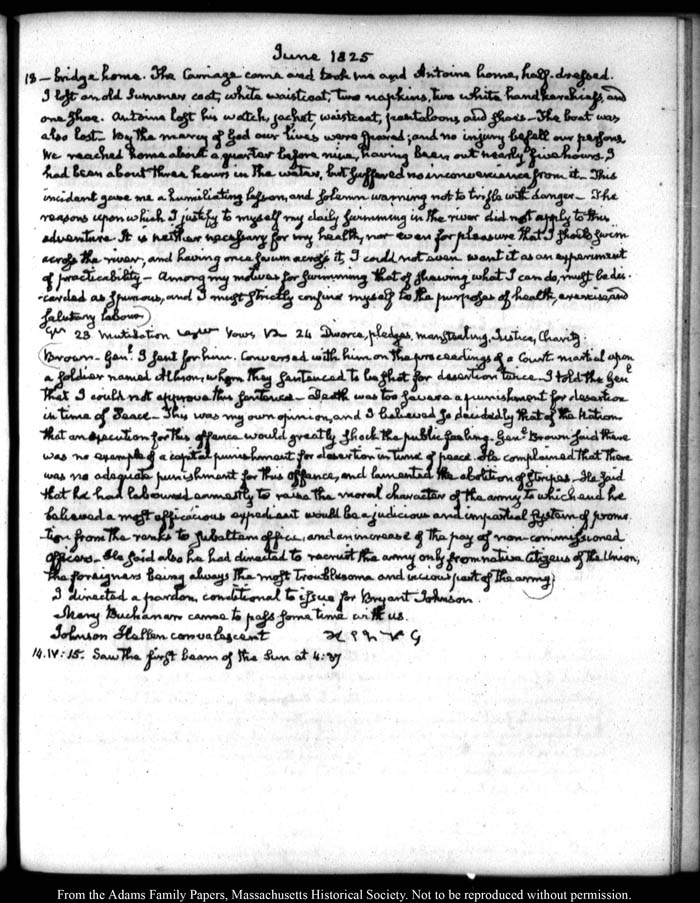 June 1825
13 — bridge home. The Carriage came and took me and Antoine home, half-dressed.
I lost an old Summer coat, white waistcoat, two napkins, two white handkerchiefs, and
one shoe. Antoine lost his watch, jacket, waistcoat, pantaloons and shoes — The boat was
also lost — By the mercy of God our lives were spared; and no injury befell our persons.
We reached home about a quarter before nine, having been out nearly five hours. I
had been about three hours in the water, but suffered no inconvenience from it — This
incident gave me a humiliating lesson, and solemn warning not to trifle with danger — The
reasons upon which I justify to myself my daily swimming in the river did not apply to this
adventure. It is neither necessary for my health, nor even for pleasure that I should swim
across the river, and having once swum across it, I could not even want it as an experiment
of practicability — Among my motives for swimming that of shewing what I can do, must be dis-
-carded as spurious, and I must strictly confine myself to the purposes of health, exercise and
salutary labour)
23 Mutilation Vows 24 Divorce, pledges, manstealing, Justice, Charity.
(Brown — Genl. I sent for him. Conversed with him on the proceedings of a Court martial upon
a soldier named whom they sentenced to be shot for desertion twice — I told the Genl
that I could not approve this sentence — Death was too severe a punishment for desertion
in time of Peace — This was my own opinion, and I believed so decidedly that of the Nation
that an execution for this offence would greatly shock the public feeling. Genl Brown said there
was no example of a capital punishment for desertion in time of peace. He complained that there
was no adequate punishment for this offence, and lamented the abolition of stripes — He said
that he had laboured earnestly to raise the moral character of the army to which end he
believed a most efficacious expedient would be a judicious and impartial system of promo
-tion from the ranks to subaltern office, and an increase of the pay of non-commissioned
officers — He said also he had directed to recruit the army only from native Citizens of the Union,
the foreigners being always the most troublesome and vicious part of the army)
I directed a pardon, conditional to issue for Bryant Johnson.
Mary Buchanan came to pass some time with us.
Johnson Hellen convalescent
14. IV: 15. Saw the first beam of the Sun at 4:37
From the Adams Family Papers, Massachusetts Historical Society. Not to be reproduced without permission.